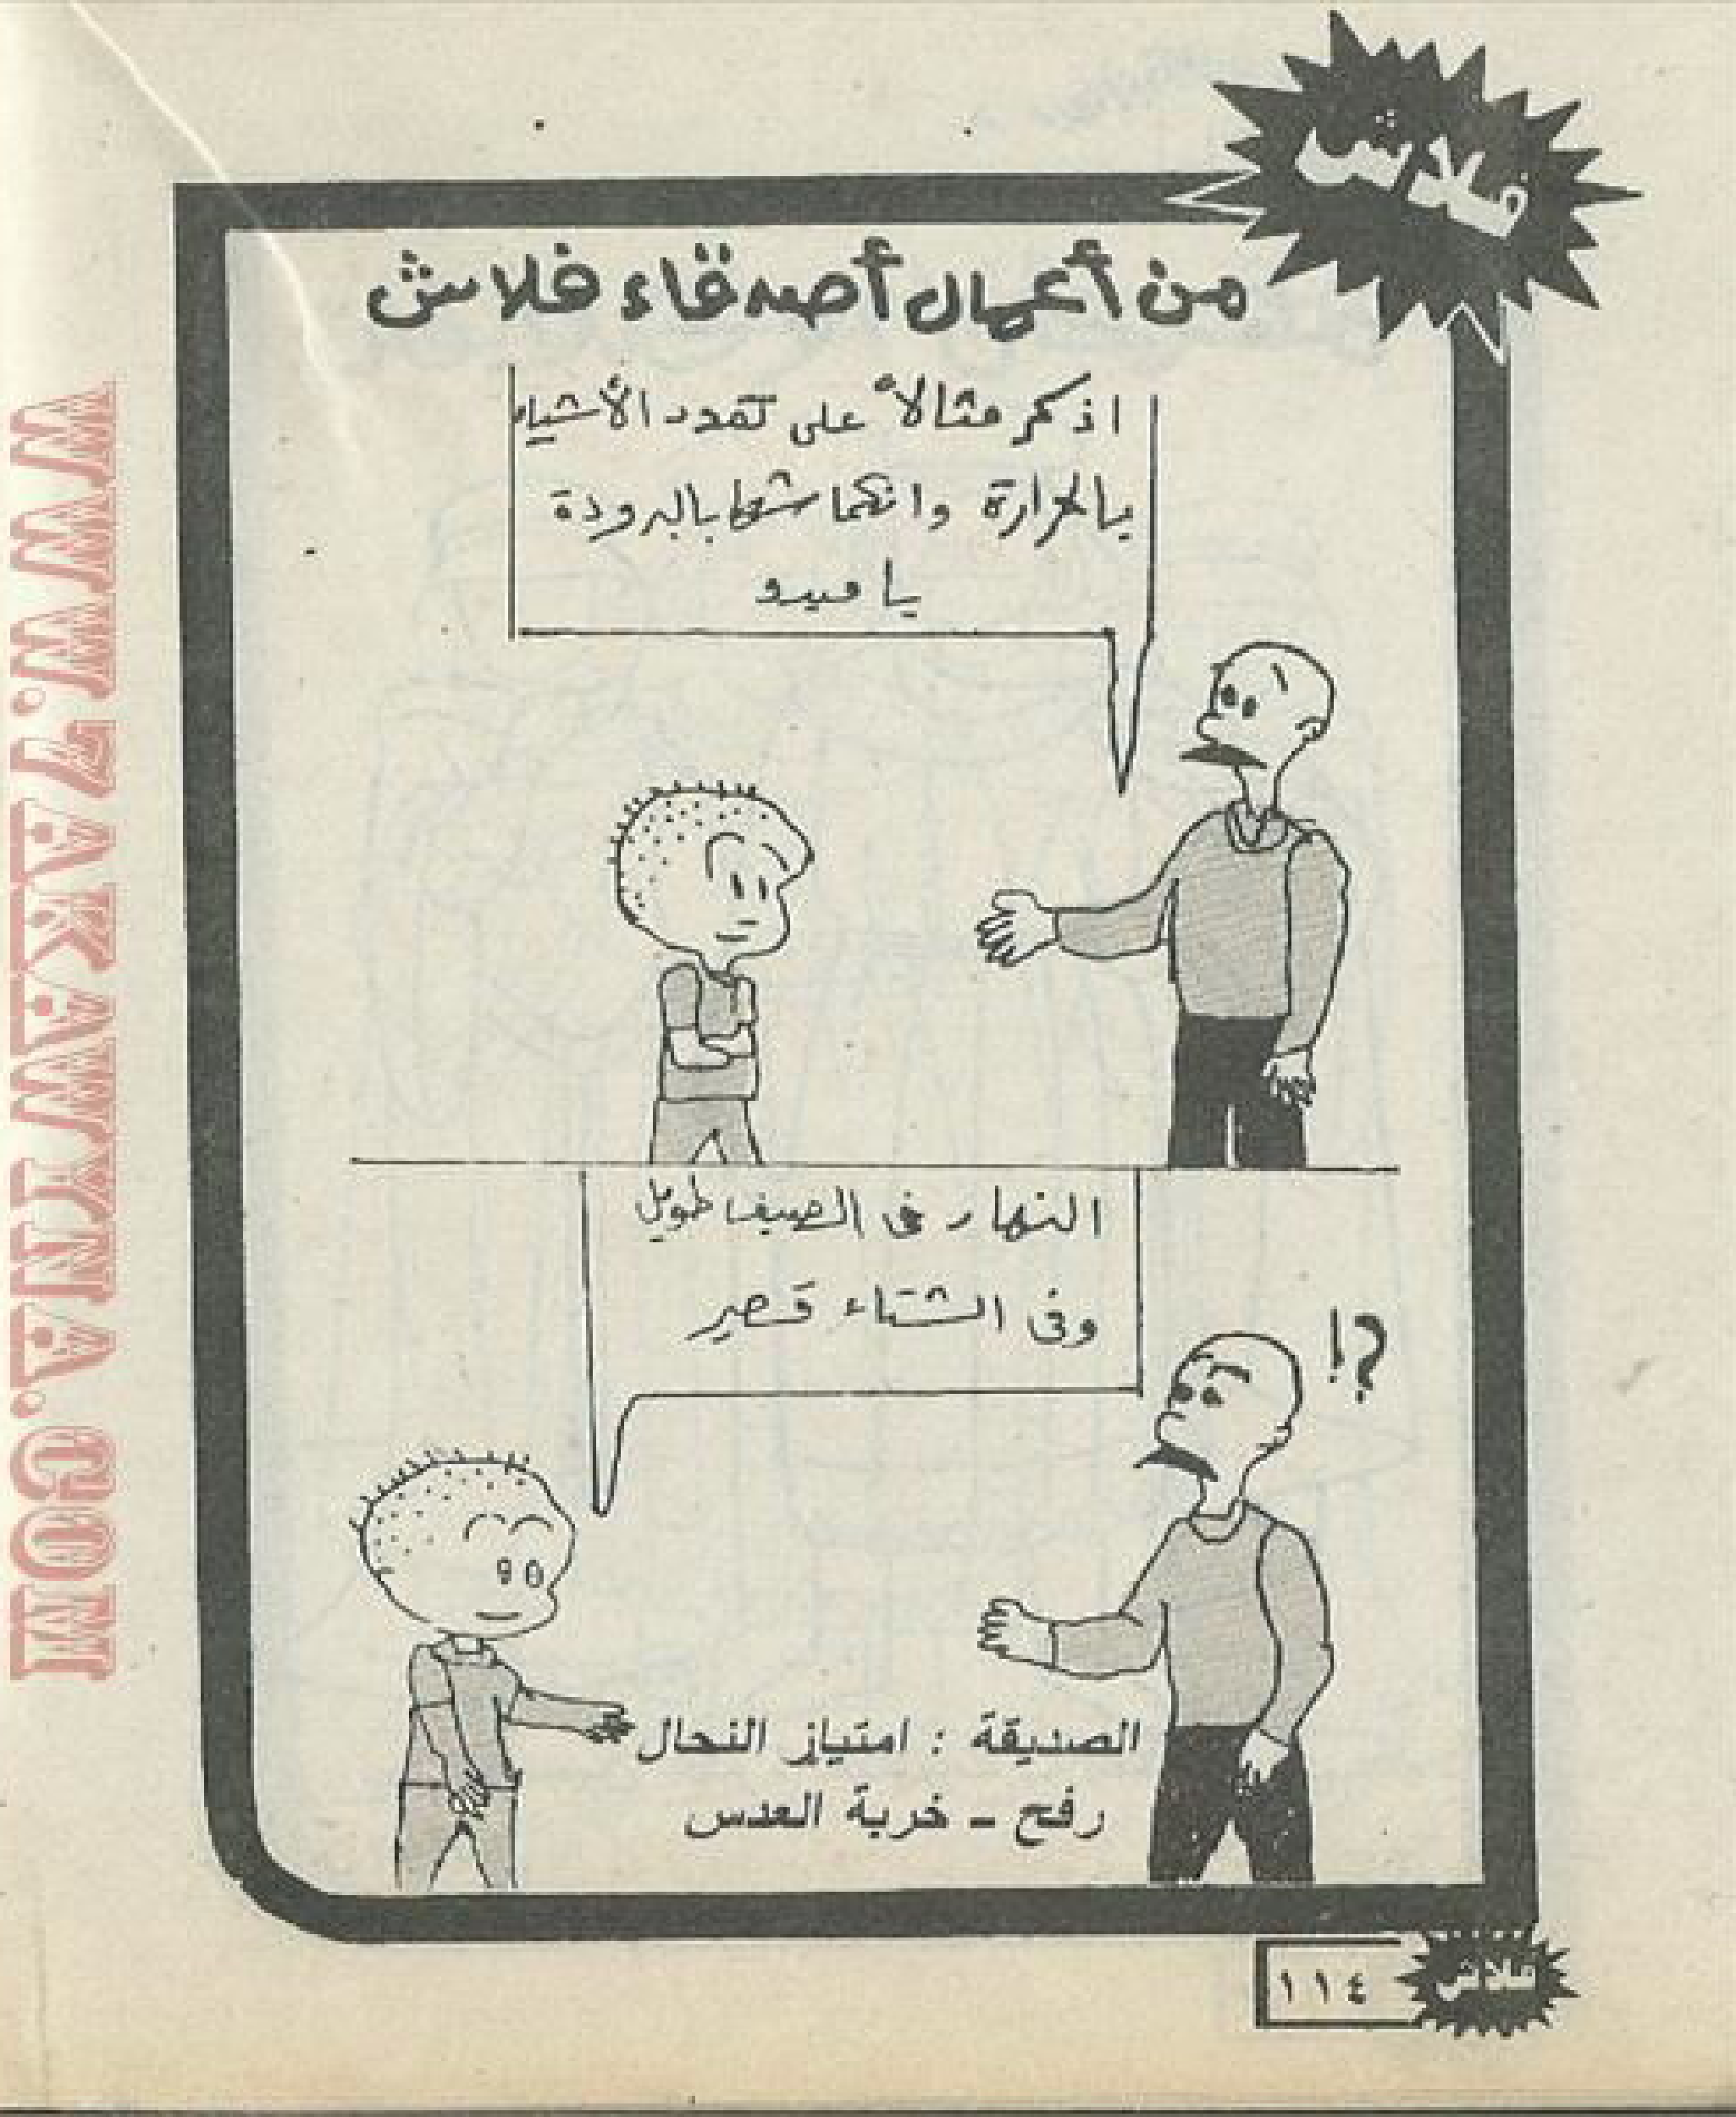 فلاش
من أعمال أصدقاء فلاش
اذكر مثالاً على تمدد الأشياء
بالحرارة وانكماشها بالبرودة
يا ميدو
النهار فى الصيف طويل
وفى الشتاء قصير
!؟
الصديقة : امتياز النحال
رفح - خربة العدس
١١٤
فلاش
WWW.7AKAWYNA.COM